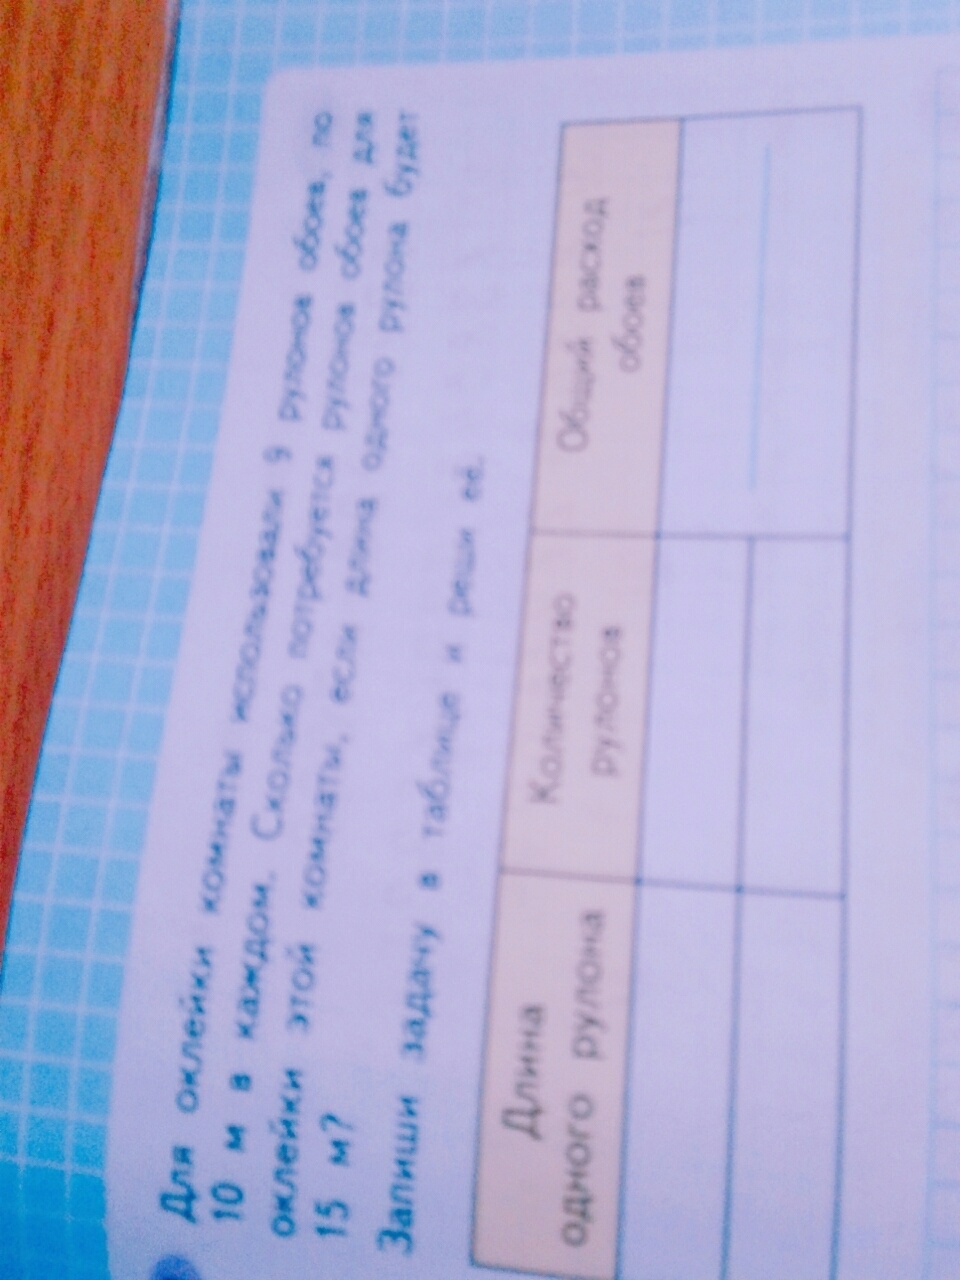 Для оклейки комнаты использовали 9 рулонов обоев, по
10 м в каждом. Сколько потребуется рулонов обоев для
оклейки этой комнаты, если длина одного рулона будет
15 м?
Запиши задачу в таблице и реши её.
Длина
одного рулона
Количество
рулонов
Общий расход
обоев